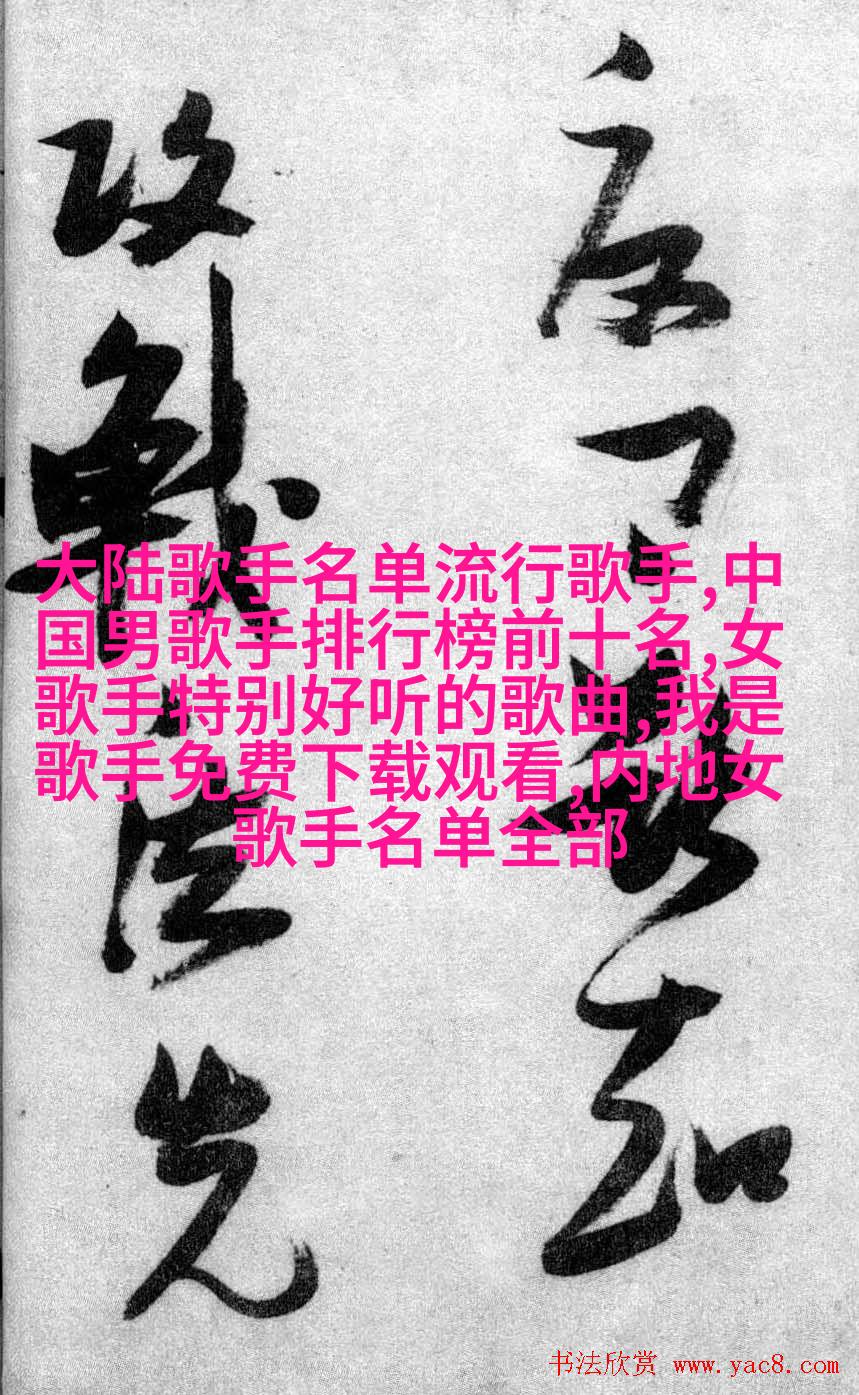 知
攻戰法先
大陆歌手名单流行歌手,中
国男歌手排行榜前十名,女
歌手特别好听的歌曲,我是
歌手免费下载观看,内地女
歌手名单全部
书法欣赏 www.yac8.com